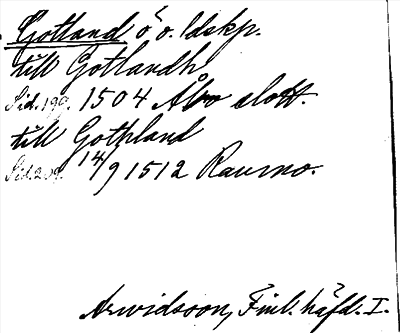 Gotland, ö o. ldskp.
till Gotlandh
Sid. 199. 1504 Åbo slott.
till Gothland
Sid. 209. 14/9 1512 Raumo.
Arwidsson, Finl. häfd. I.